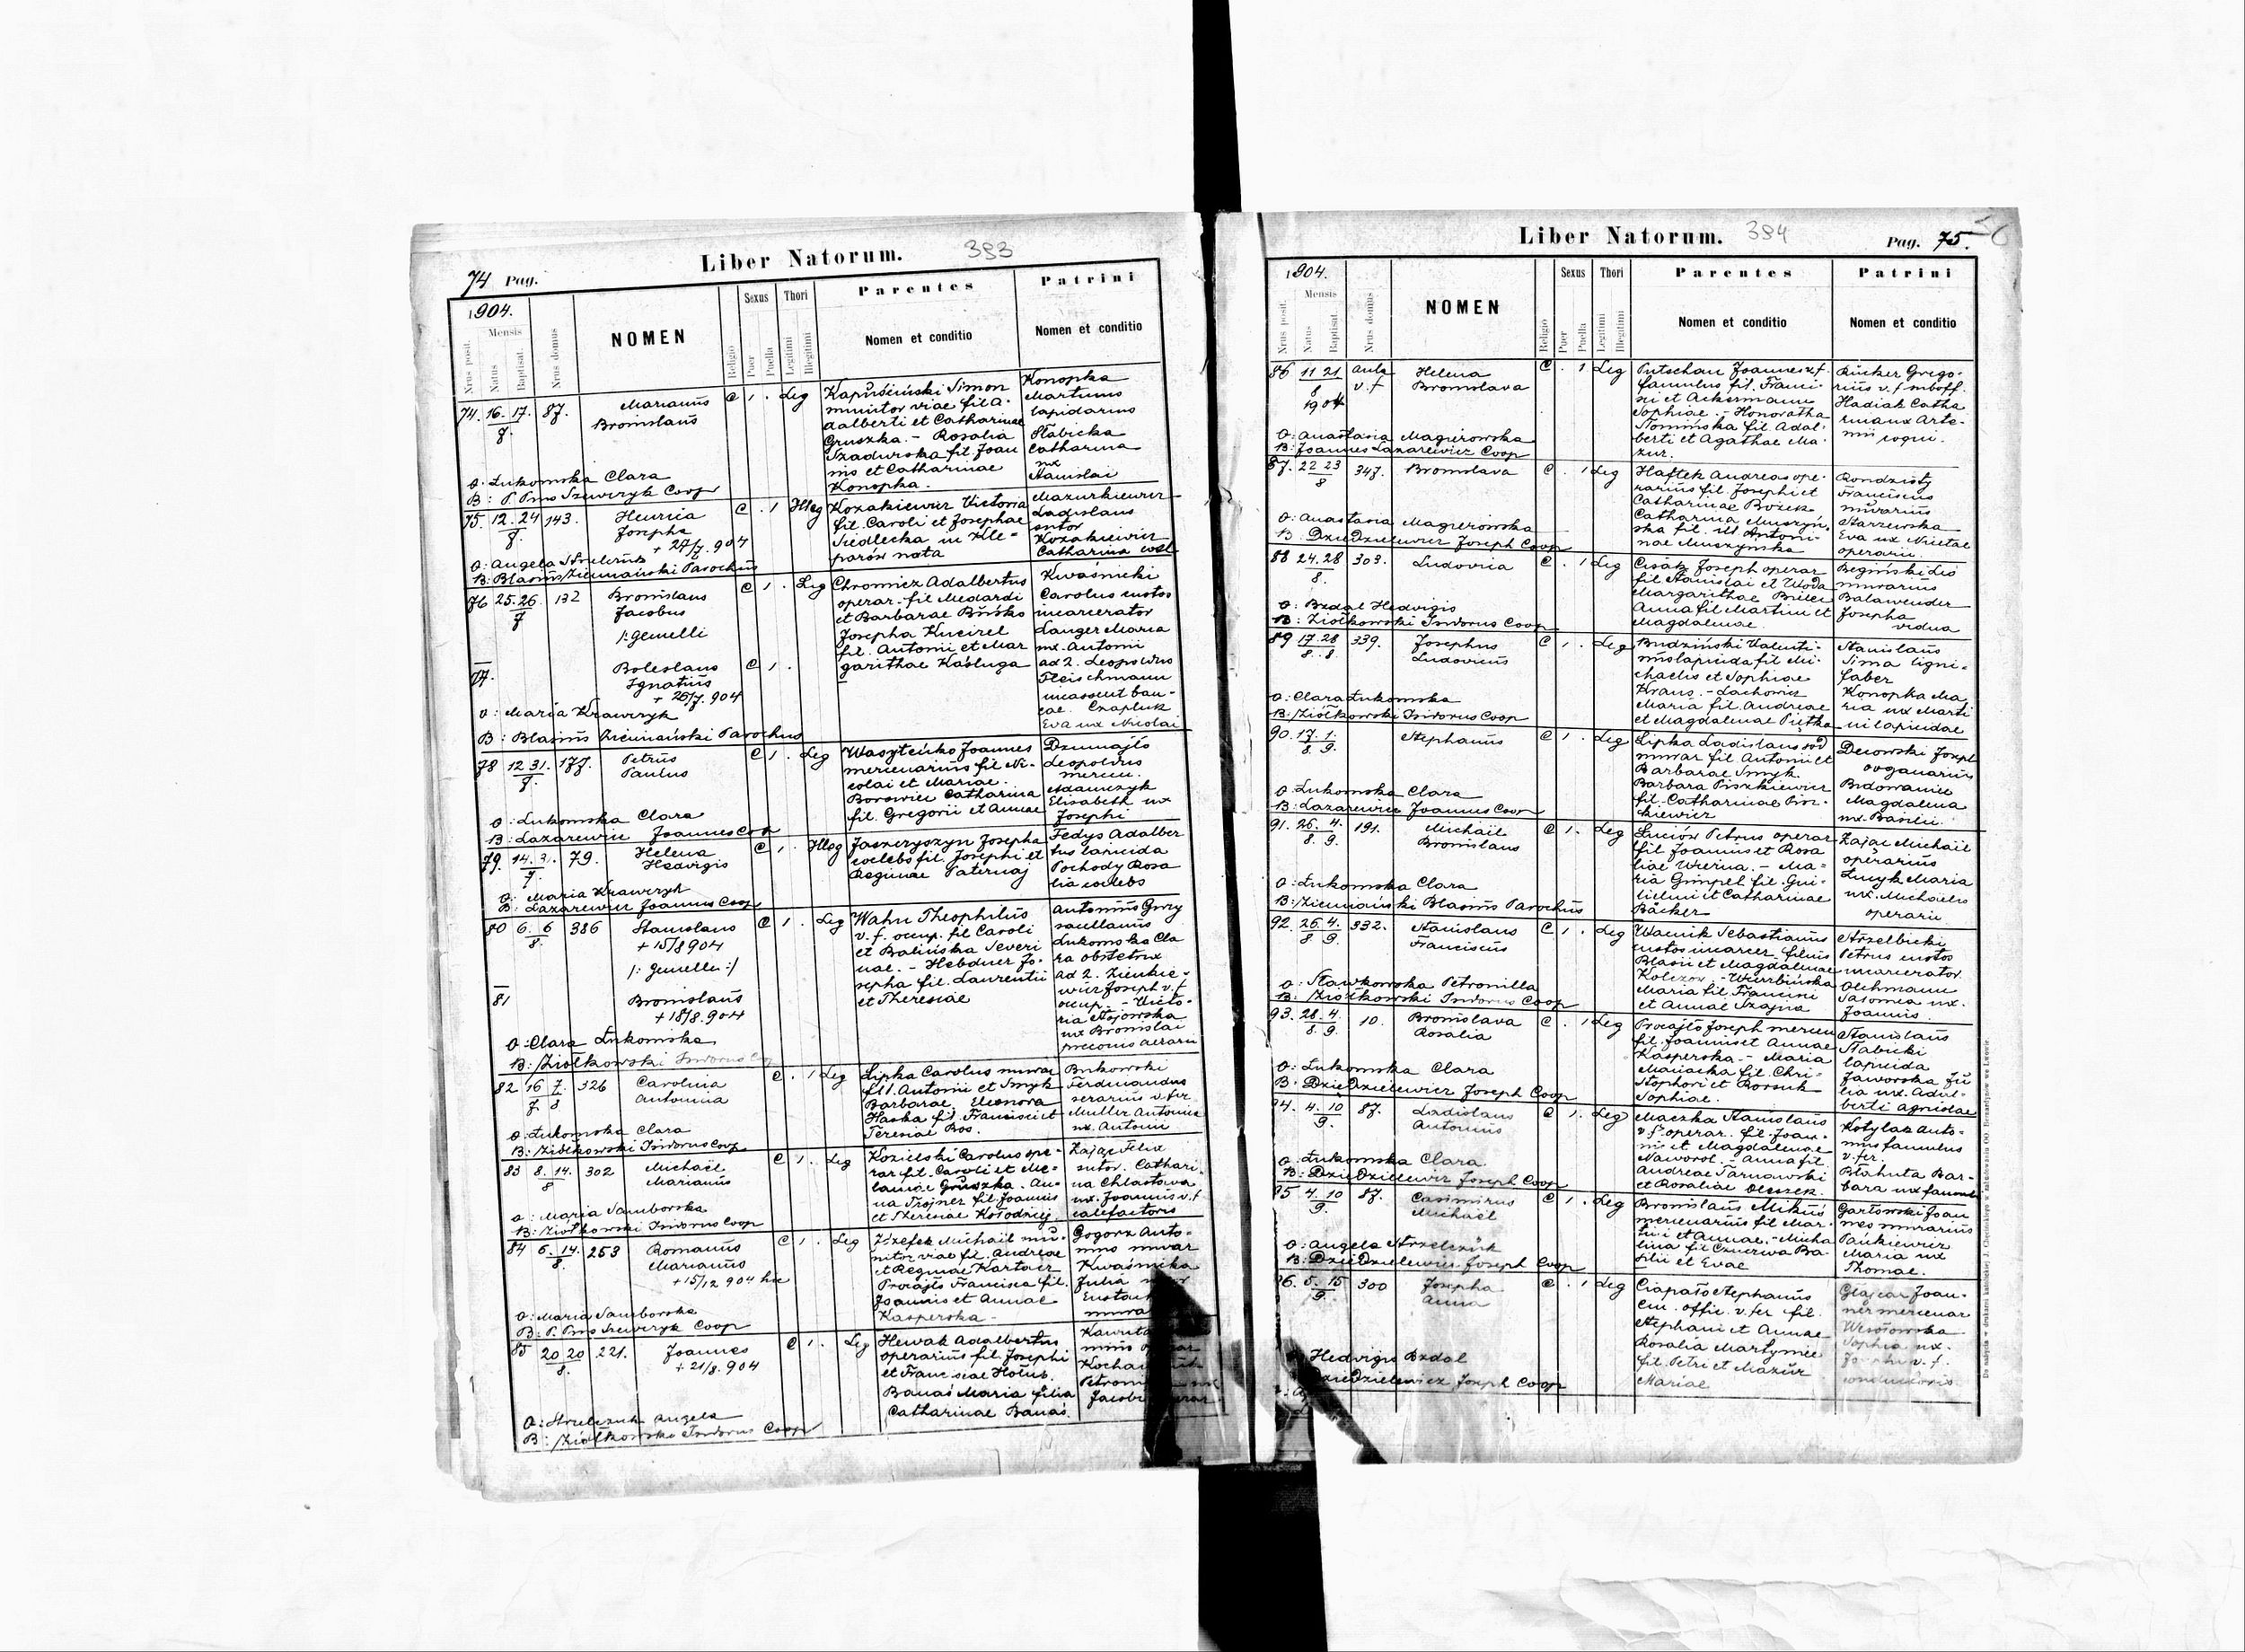 Liber Natorum.
383
74 Pag.
1904.
Nrus posit.
Mensis
Natus
Baptisat.
Nrus domus
NOMEN
Religio
Sexus
Puer
Puella
Thori
Legitimi
Illegitimi
Parentes
Nomen et conditio
Patrini
Nomen et conditio
74. 16. 17. 87.
Marianus
Bronislaus
C 1 . Leg
Kapuściński Simon
munitor viae fil A-
dalberti et Catharinae
Gruszka. - Rosalia
Szadurska fil. Joan
nis et Catharinae
Konopka.
Konopka
Martinus
lapidarius
Słabicka
Catharina
ux
Stanislai
O: Łukomska Clara
B: P. Pms Szewczyk Coop
75. 12. 24 143.
Henrica
Josepha
+ 27/7. 904
C . 1 Illeg
Kozakiewicz Victoria
fil. Caroli et Josephae
Siedlecka in Kle-
parów nata
Mazurkiewicz
Ladislaus
sutor
Kozakiewicz
Catharina coel
O: Angela
B: Blasius Ziemiański Parochus
76 25. 26 132
7
Bronislaus
Jacobus
/: gemelli
C 1 . Leg
Chromicz Adalbertus
operar. fil Medardi
et Barbarae
Josepha
fil. Antonii et Mar
garithae
Kwaśnicki
Carolus custos
incarcerator
Langer Maria
ux. Antonii
ad 2. Leopoldus
Fleischmann
77.
Boleslaus
Ignatius
+ 26/7. 904
C 1 .
Czapluk
Eva ux Nicolai
O: Maria Krawczyk
B: Blasius Ziemiański Parochus
78 12 31. 177.
7.
Petrus
Paulus
C 1 . Leg
Joannes
mercenarius fil Ni-
colai et Mariae.
Borowiec Catharina
fil. Gregorii et Annae
Leopoldus
mercen.
Adamczyk
Elisabeth ux
Josephi
O: Łukomska Clara
B: Lazarewicz Joannes Coop
79. 14. 79.
7.
Helena
Hedvigis
C Illeg
Jaszczyszyn Josepha
coelebs fil. Josephi et
Reginae Paternaj
Fedys Adalber
tus lapicida
Pochody Rosa
lia coelebs
O: Maria Krawczyk
B: Lazarewicz Joannes Coop
80 6. 6 386
8.
Stanislaus
+ 15/8 904
/: gemelli :/
C 1 . Leg
Wahn Theophilus
v. f. occup. fil Caroli
et Balińska Severi
nae. - Hebdner Jo-
sepha fil. Laurentii
et Theresiae
Antonius
Łukomska Cla
ra obstetrix
ad 2.
Joseph v. f
occup. - Victo-
ria
ux Bronislai
81
Bronislaus
+ 18/8. 904
O: Clara Łukomska
B: Ziółkowski Isidorus Coop
82 16 7. 326
7. 8
Carolina
Antonina
C . 1 Leg
Lipka Carolus murar
fil. Antonii et Smyk
Barbarae. Eleonora
Haska fil. Francisci et
Teresiae Bos.
Bukowski
Ferdinandus
serarius v. fer
Muller Antonina
ux. Antonii
O: Łukomska Clara
B: Ziółkowski Isidorus Coop
83 8. 14. 302
8
Michaël
Marianus
C 1 . Leg
Kozielski Carolus ope-
rar fil. Caroli et Me-
laniae Gruszka. An-
na Trojner fil. Joannis
et Theresiae Kołodziej
Zając Felix
sutor. Cathari-
na Chlastawa
ux. Joannis v. f
calefactoris
O: Maria Samborska
B: Ziółkowski Isidorus Coop
84 6. 14. 253
8.
Romanus
Marianus
+ 15/12 904 hic
C 1 . Leg
Józefek Michaël mu-
nitor viae fil. Andreae
et Reginae
Procajło Francisca fil.
Joannis et Annae
Kasperska.
Gogorz Anto-
nius murar
Kwaśnicka
Julia
O: Maria Samborska
B: P. Pms Szewczyk Coop
85 20 20 221.
8.
Joannes
+ 21/8. 904
C 1 . Leg
Hewak Adalbertus
operarius fil. Josephi
et Franciscae Hołub.
Banaś Maria filia
Catharinae Banaś.
O: Strzelczuk Angela
B: Ziółkowski Isidorus Coop
Liber Natorum.
384
Pag. 75.
1904.
Nrus posit.
Mensis
Natus
Baptisat.
Nrus domus
NOMEN
Religio
Sexus
Puer
Puella
Thori
Legitimi
Illegitimi
Parentes
Nomen et conditio
Patrini
Nomen et conditio
86 11 21 aula
8 v. f
1904
Helena
Bronislava
C . 1 Leg
Putschan Joannes v. f.
famulus fil. Franci-
sci et Ackermann
Sophiae. - Honoratha
Słomińska fil. Adal-
berti et Agathae Ma-
zur.
Rücker Grego-
rius v. f
Hadiak Catha
rina ux Arte-
mii coqui.
O: Anastasia Magierowska
B: Joannes Lazarewicz Coop
87. 22 23 347.
8
Bronislava
C . 1 Leg
Haftek Andreas ope-
rarius fil. Josephi et
Catharinae Bożek
Catharina Muszyń-
ska fil. ill. Antoni-
nae Muszyńska
Rondzisty
Franciscus
murarius
Starzewska
Eva ux Nicetae
operarii.
O: Anastasia Magierowska
B: Dziedzielewicz Joseph Coop
88 24. 28 303.
8.
Ludovica
C . 1 Leg
Cisak Joseph operar
fil Stanislai et Woda
Margarithae
Anna fil Martini et
Magdalenae.
Begiński Leo
murarius
Balawender
Josepha
vidua
O: Bzdal Hedvigis
B: Ziółkowski Isidorus Coop
89 17. 28 339.
8. 8.
Josephus
Ludovicus
C 1 . Leg
Budziński Valenti-
nus lapicida fil Mi-
chaelis et Sophiae
Kraus. - Lachowicz
Maria fil. Andreae
et Magdalenae Piętka
Stanislaus
Sima ligni-
faber
Konopka Ma
ria ux Marti
ni lapicidae
O: Clara Łukomska
B: Ziółkowski Isidorus Coop
90. 17. 1.
8. 9.
Stephanus
C 1 . Leg
Lipka Ladislaus
murar fil. Antonii et
Barbarae Smyk.
Barbara Piszkiewicz
fil. Catharinae Pisz-
kiewicz
Derowski Joseph
organarius
Magdalena
ux. Basilii
O: Łukomska Clara
B: Lazarewicz Joannes Coop
91. 26. 4. 191.
8. 9.
Michaël
Bronislaus
C 1 . Leg
Luciów Petrus operar
fil Joannis et Rosa
liae - Ma-
ria Gimpel fil. Gui-
lielmi et Catharinae
Bäcker
Zając Michaël
operarius
Łucyk Maria
ux. Michaelis
operarii
O: Łukomska Clara
B: Ziemiański Blasius Parochus
92. 26. 4. 332.
8 9.
Stanislaus
Franciscus
C 1 . Leg
Wacnik Sebastianus
custos incarcer. filius
Blasii et Magdalenae
Maria fil Francisci
et Annae Szajna
Strzelbicki
Petrus custos
incarcerator
Olchmann
Salomea ux.
Joannis
O: Sławkowska Petronilla
B: Ziółkowski Isidorus Coop
93. 28. 4. 10.
8. 9.
Bronislava
Rosalia
C . 1 Leg
Procajło Joseph mercen
fil. Joannis et Annae
Kasperska. - Maria
Maniacka fil. Chri-
stophori et
Sophiae.
Stanislaus
Słabicki
lapicida
Jaworska Ju
lia ux. Adal-
berti agricolae
O: Łukomska Clara
B: Dziedzielewicz Joseph Coop
94. 4. 10 87.
9.
Ladislaus
Antonius
C 1. Leg
Maczka Stanislaus
v. f. operar. fil. Joan-
nis et Magdalenae
Nawrot. - Anna fil.
Andreae Tarnowski
et Rosaliae
Kotylak Anto-
nius famulus
v. fer.
Błahuta Bar-
bara ux famuli
O: Łukomska Clara
B: Dziedzielewicz Joseph Coop
95 4. 10 87.
9.
Casimirus
Michaël
C 1 . Leg
Bronislaus Mikuś
mercenarius fil Mar-
tini et Annae. - Micha
lina fil Czuczwa Ba-
silii et Evae
Garłowski Joan
nes murarius
Pańkiewicz
Maria ux
Thomae.
O: Angela Strzelczuk
B: Dziedzielewicz Joseph Coop
96. 5. 15 300
9.
Josepha
Anna
C . 1 Leg
Ciapało Stephanus
em. offic. v. fer fil.
Stephani et Annae
Rosalia Martyniec
fil. Petri et Mazur
Mariae
Joan-
nes mercenar
Wesołowska
Sophia ux.
Josephi v. f.
conductoris
Hedvigis Bzdal
Dziedzielewicz Joseph Coop